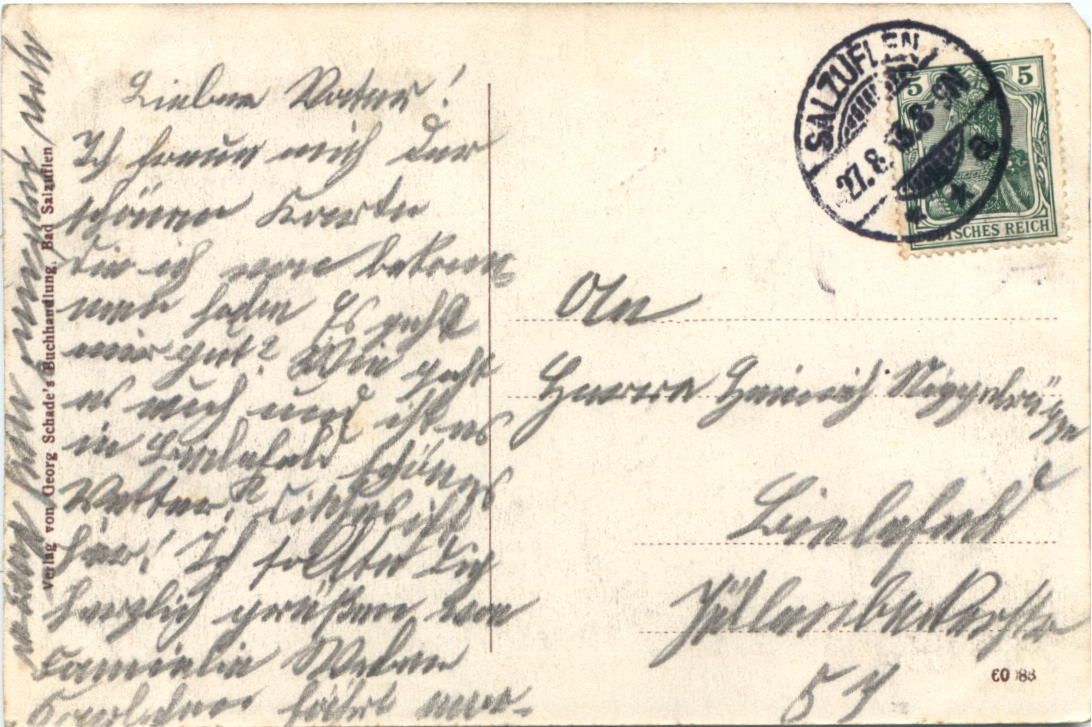 Lieber Vater!
Ich freue mich der
schönen Karte
die ich von bekom-
men habe Es geht
mir gut? Wie geht
es euch und ist es
in Bielefeld schönes
Wetter? ist
hier! Ich sollte dich
herzlich grüßen von
Familie Weber
fährt mor-
Verlag von Georg Schade's Buchhandlung, Bad Salzuflen
SALZUFLEN
27.8.13.8-9N
* * a
5 5
DEUTSCHES REICH
An
Herrn Heinrich
Bielefeld
Jöllenbeckerstr
57